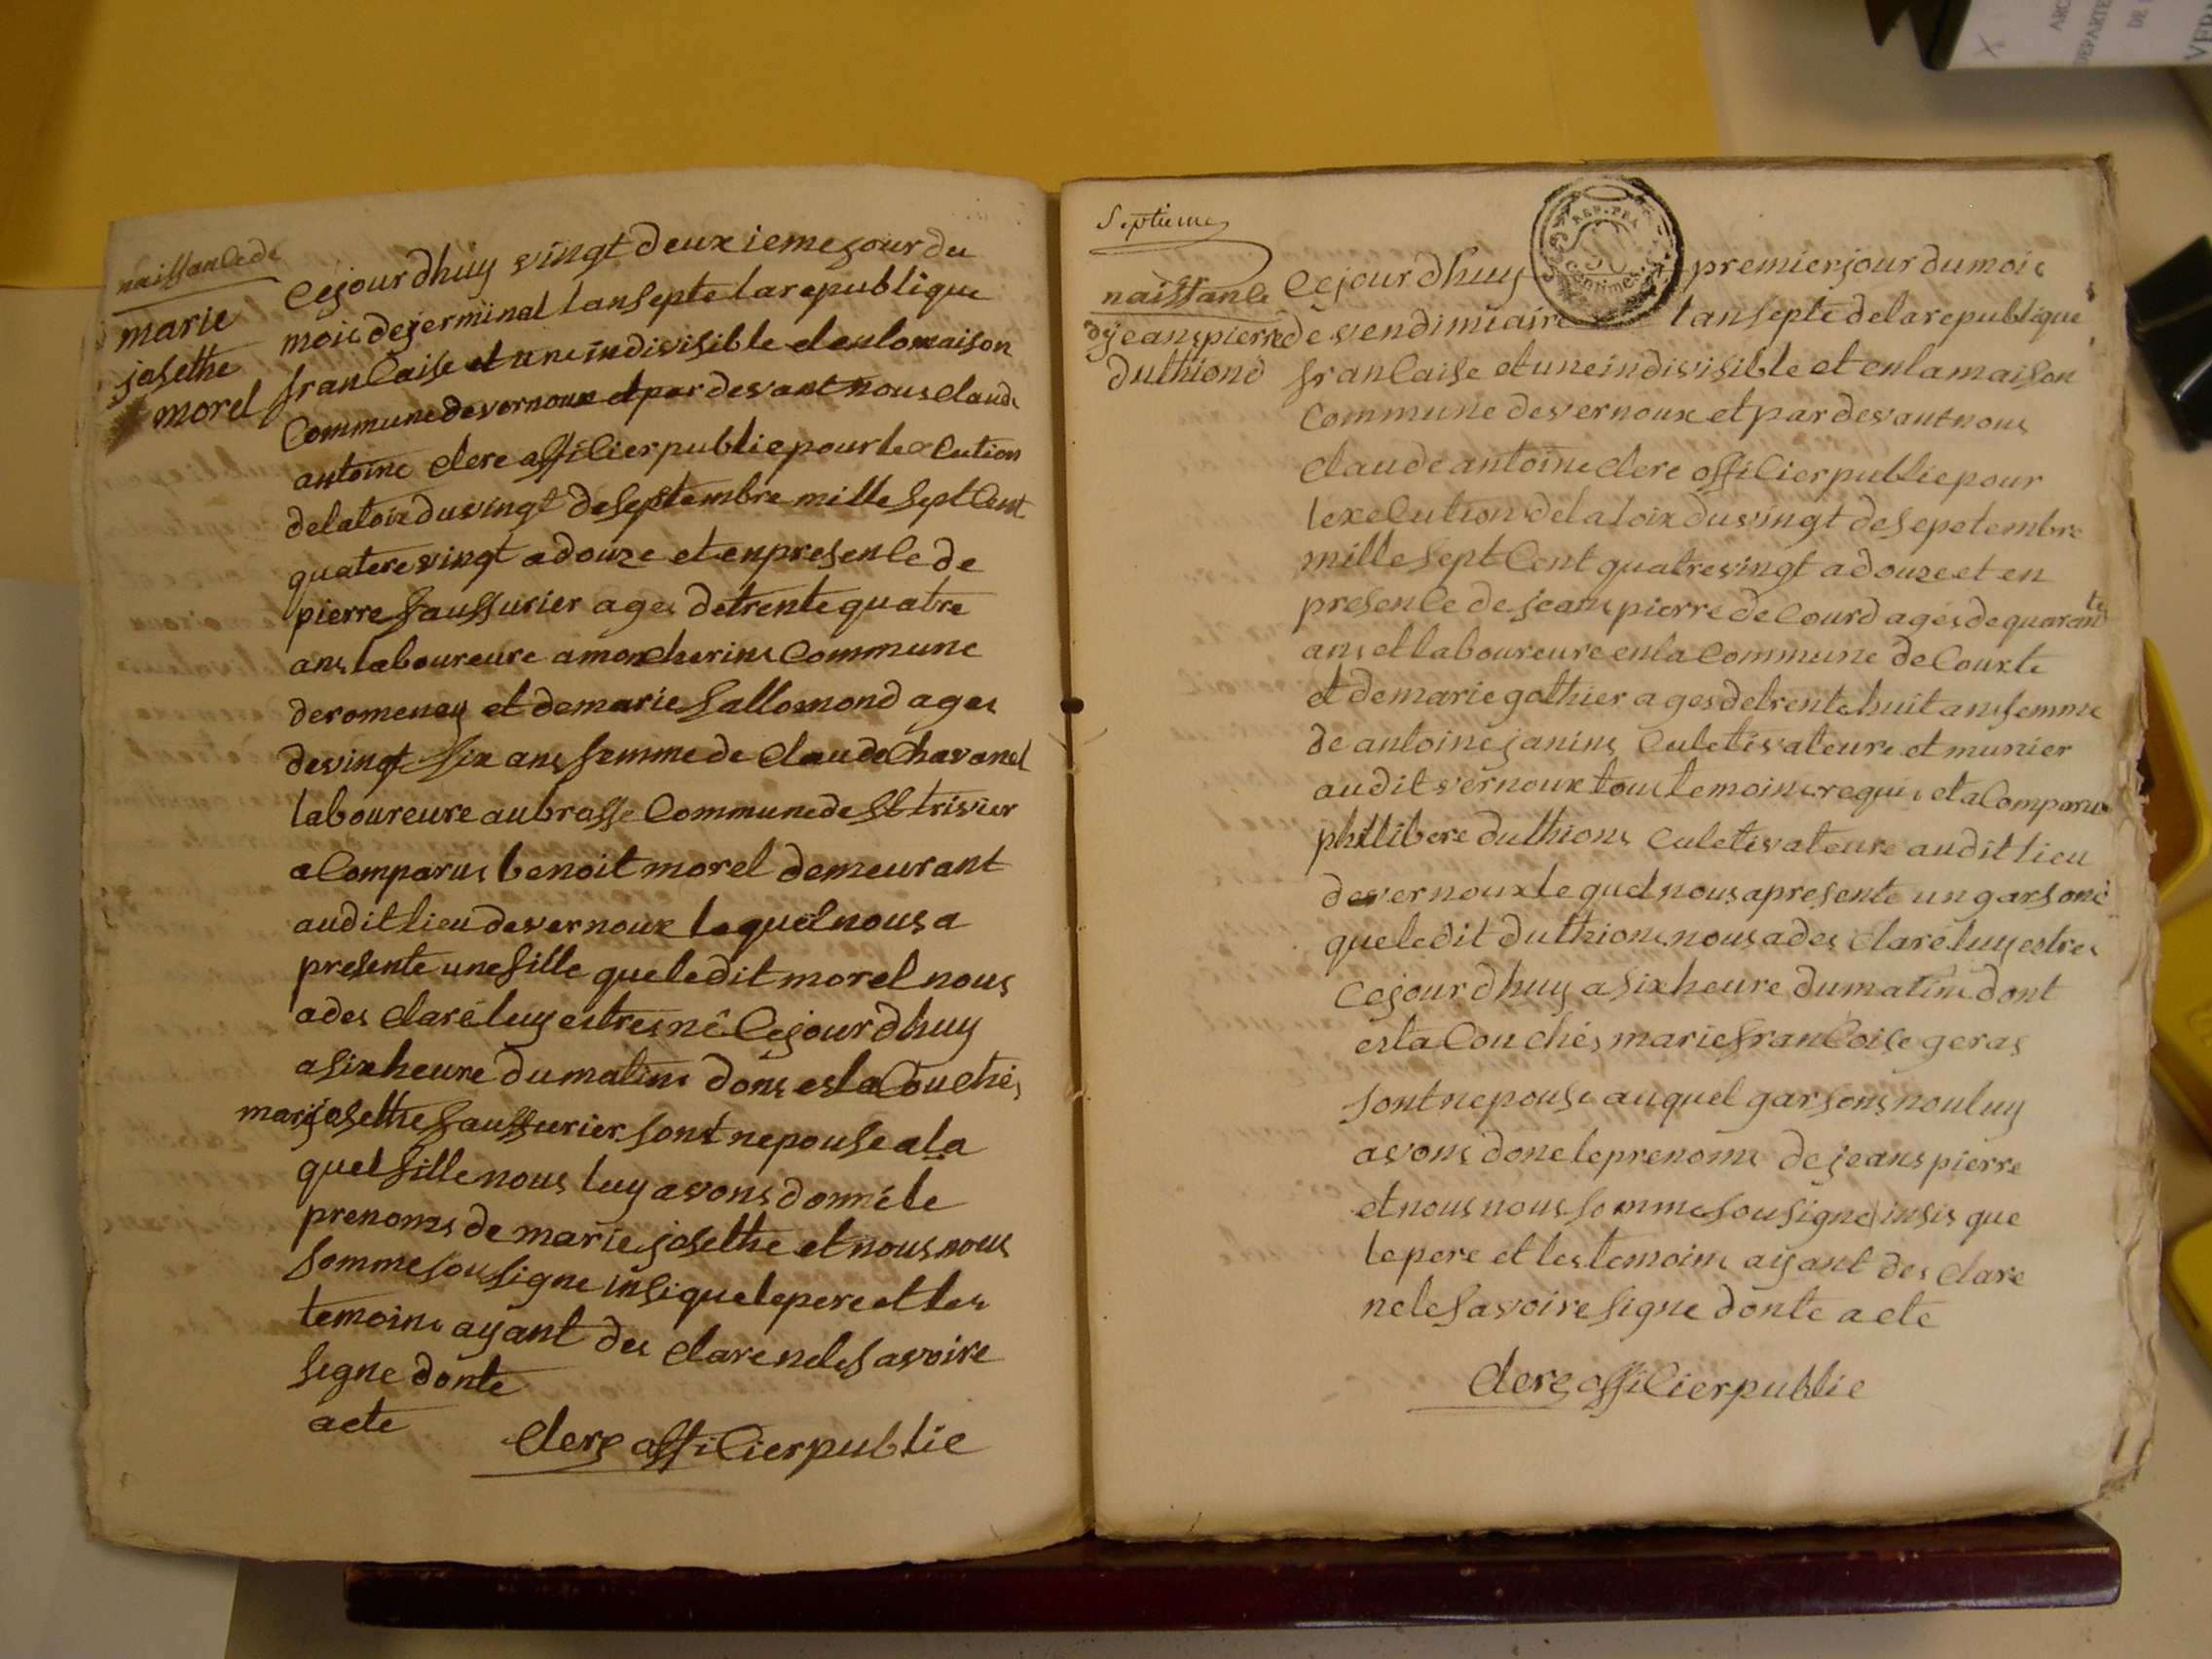 naissance de
marie
josethe
morel
Cejourdhuy vingt deuxieme jour du
mois degerminal lansepte larepublique
francaise et une indivisible et enlamaison
Commune devernoux et par devant nous claude
antoine clerc officier publie pour lexecution
delaloix duvingt deseptembre mille sept Cent
quatere vingt adouze et enpresence de
pierre faussurier ages detrente quatre
ans laboureure amoncherins Commune
deromenay et demarie sallomond ages
devingt six ans femme de claude Chavanel
laboureure aubrasse Commune de St trivier
a Comparus benoit morel demeurant
audit lieu devernoux lequel nous a
presente une fille queledit morel nous
ades clareluy estres né Cejourdhuy
a six heure dumatins dons esta Couchés
marijosethe faussurier sont nepouse ala
quel fille nous luy avons donné le
prenoms de marie josethe et nous nous
somme sousigne insi que le pere et les
temoins ayant des clare nele savoire
signe donte
acte
Clerc officier publie
Septieme
REP. FRA
centimes
naissance
dejeans pierre
duthiond
Cejourdhuy premier jour dumois
de vendimiaire lansepte delarepublique
francaise et une indivisible et enlamaison
Commune devernoux et par devant nous
claude antoine clere officier publie pour
lexecution delaloix duvingt desepetembre
mille sept Cent quatrevingt adouze et en
presence de jeans pierre decourd agés de quarante
ans et laboureure enla Commune de Courte
et demarie gothier ages detrente huit ans femme
de antoine janins Culetivateure et munier
audit vernoux tous temoins requis et a Comparus
philibere duthions Culetivateure audit lieu
devernoux le quel nous apresente un garsone
queledit duthions nous ades claréluy estres
Cejourdhuy a six heure dumatins dont
esta Couchés marie francoise geras
sont nepouse auquel garsons nouluy
avons done leprenoms de jeans pierre
et nous nous somme sousigne insis que
lepere et les temoins ayant des clare
nele savoire signe donte acte
Clerc officier publie